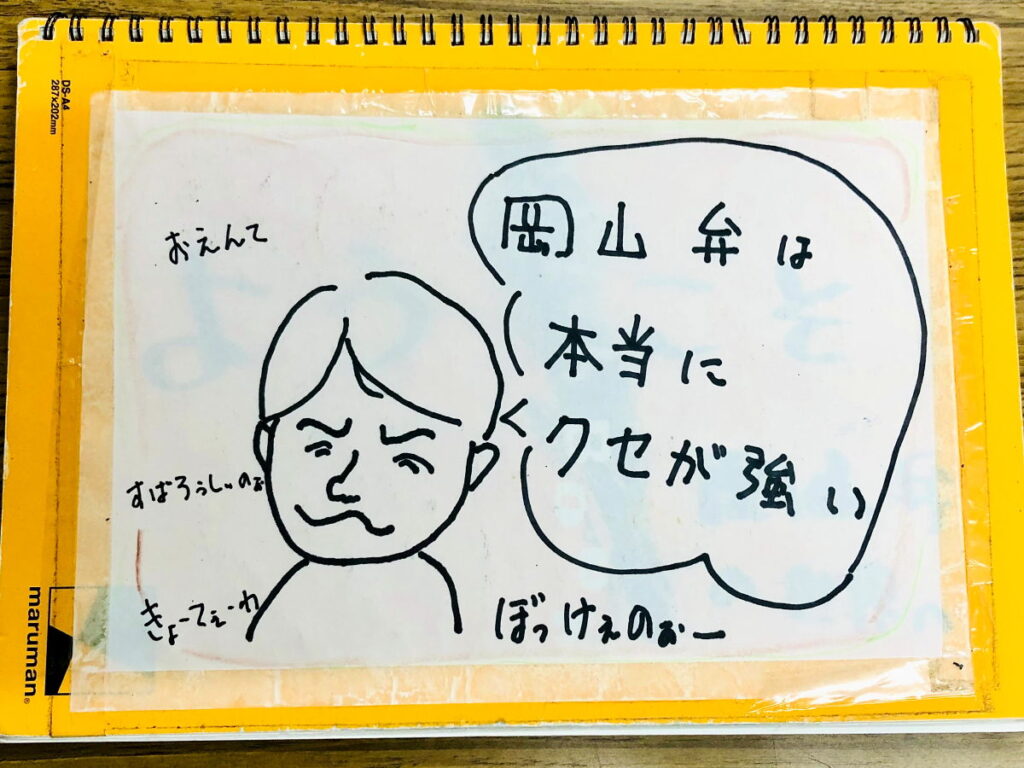 DS-A4
287×202mm
岡山弁は
本当に
クセが強い
おえんて
すばろうしいのぉ
きょーてぇーわ
ぼっけぇのぉー
maruman®